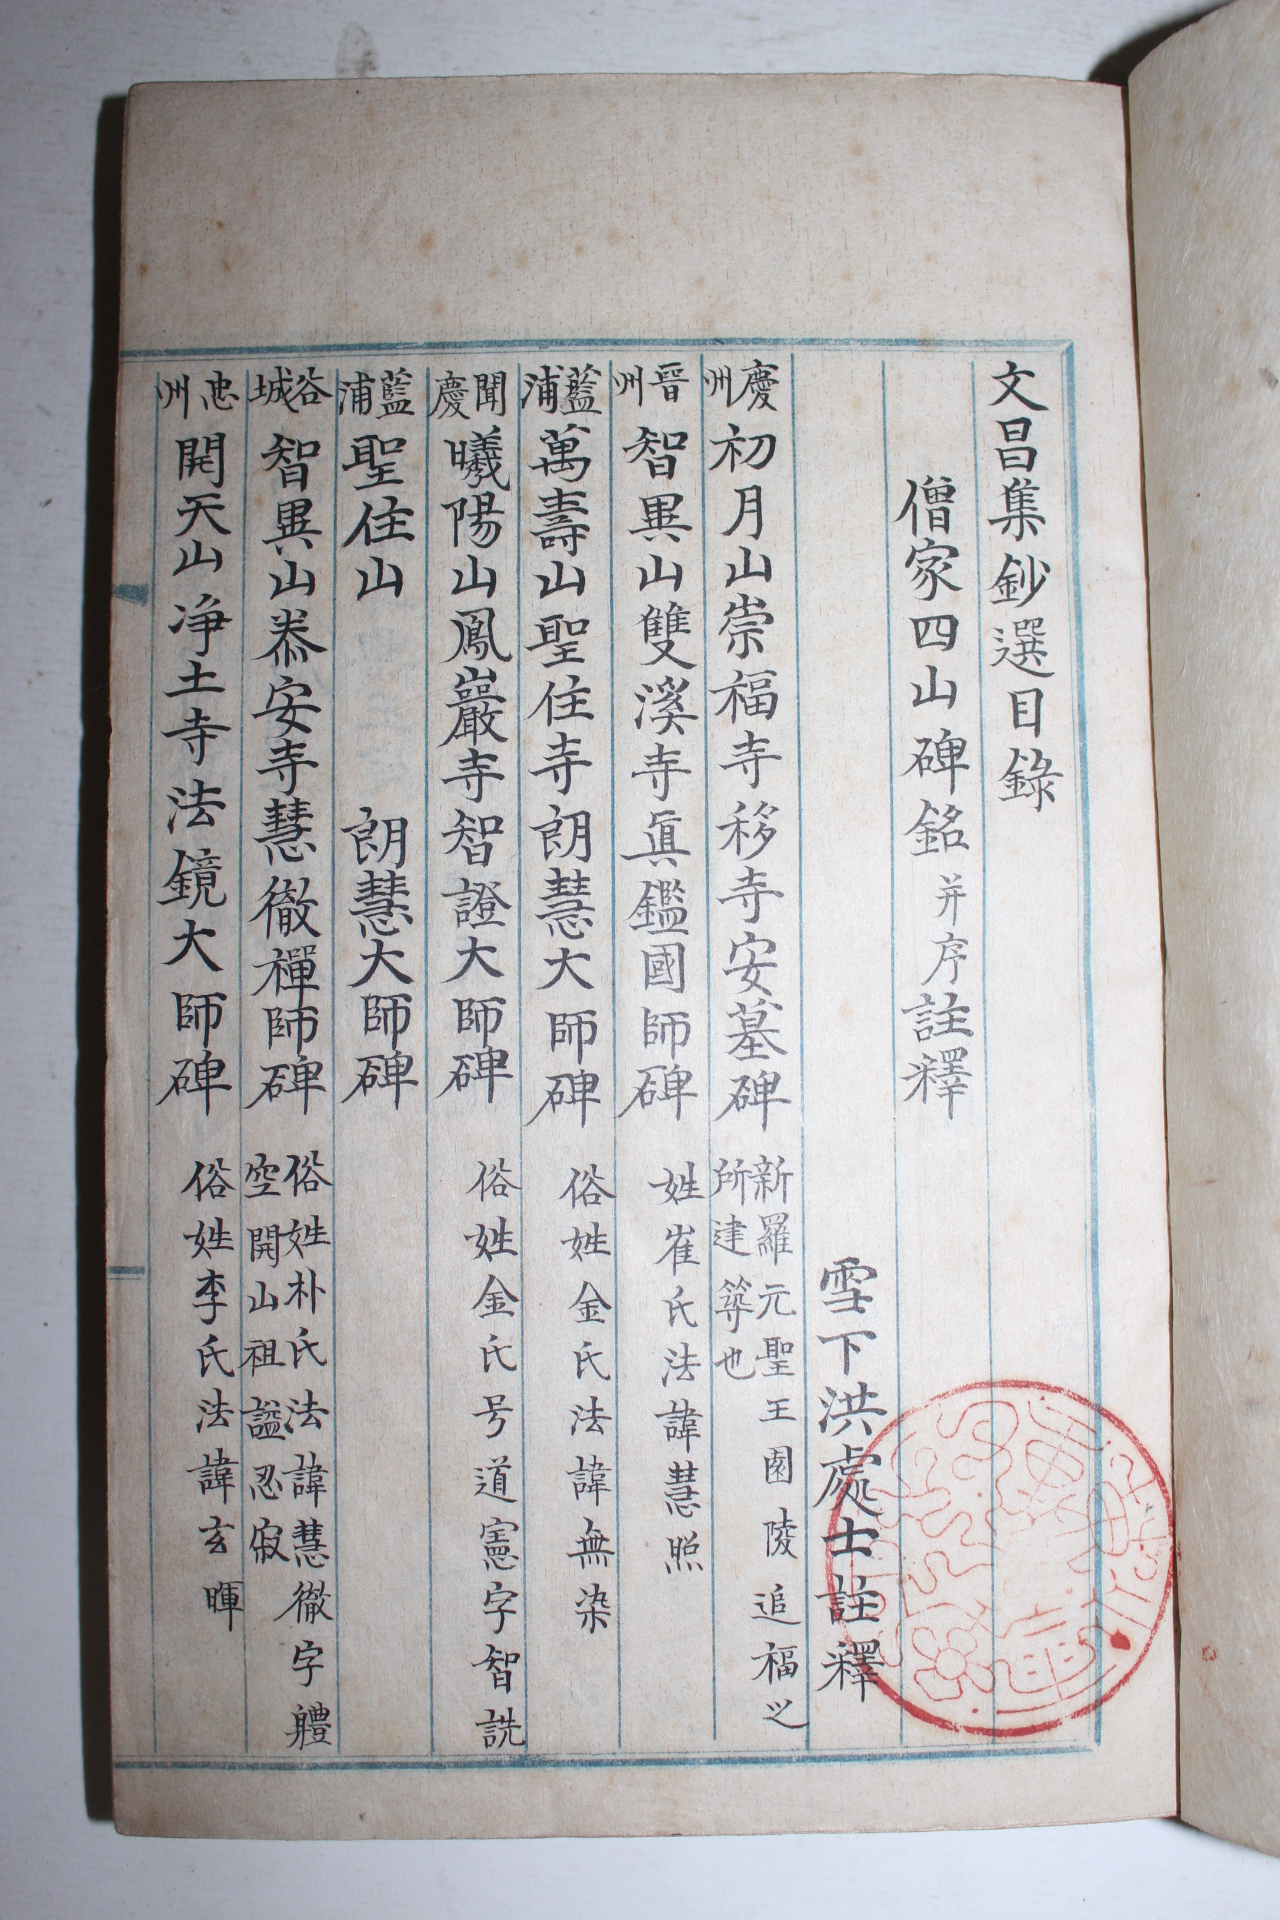 文昌集鈔選目錄
僧家四山碑銘并序註釋
雪下洪處士註釋
慶州初月山崇福寺移寺安墓碑 新羅元聖王園陵追福之所建築也
晉州智異山雙溪寺眞鑑國師碑 姓崔氏法諱慧照
藍浦萬壽山聖住寺朗慧大師碑 俗姓金氏法諱無染
聞慶曦陽山鳳巖寺智證大師碑 俗姓金氏号道憲字智詵
藍浦聖住山 朗慧大師碑
谷城智異山泰安寺慧徹禪師碑 俗姓朴氏法諱慧徹字軆空開山祖謚忍寂
忠州開天山净土寺法鏡大師碑 俗姓李氏法諱玄暉